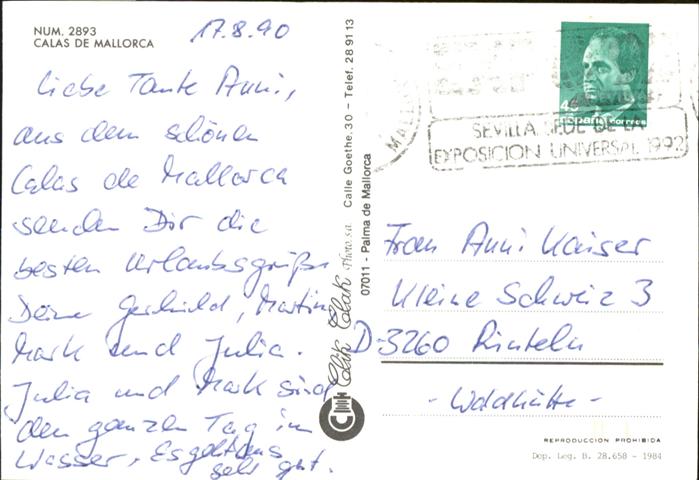 NUM. 2893
CALAS DE MALLORCA
17.8.90
Liebe Tante Anni,
aus dem schönen
Calas de Mallorca
senden Dir die
besten Urlaubsgrüße
Deine Gerhild, Martin
Mark und Julia.
Julia und Mark sind
den ganzen Tag im
Wasser, Es geht uns
sehr gut.
Clik Clak Photo s.a. Calle Goethe, 30 – Telef. 28 91 13
07011 - Palma de Mallorca
45
España correos
SEVILLA, SEDE DE LA
EXPOSICION UNIVERSAL 1992
Frau Anni Kaiser
Kleine Schweiz 3
D-3260 Rinteln
- Waldhütte -
REPRODUCCION PROHIBIDA
Dep. Leg. B. 28.658 - 1984